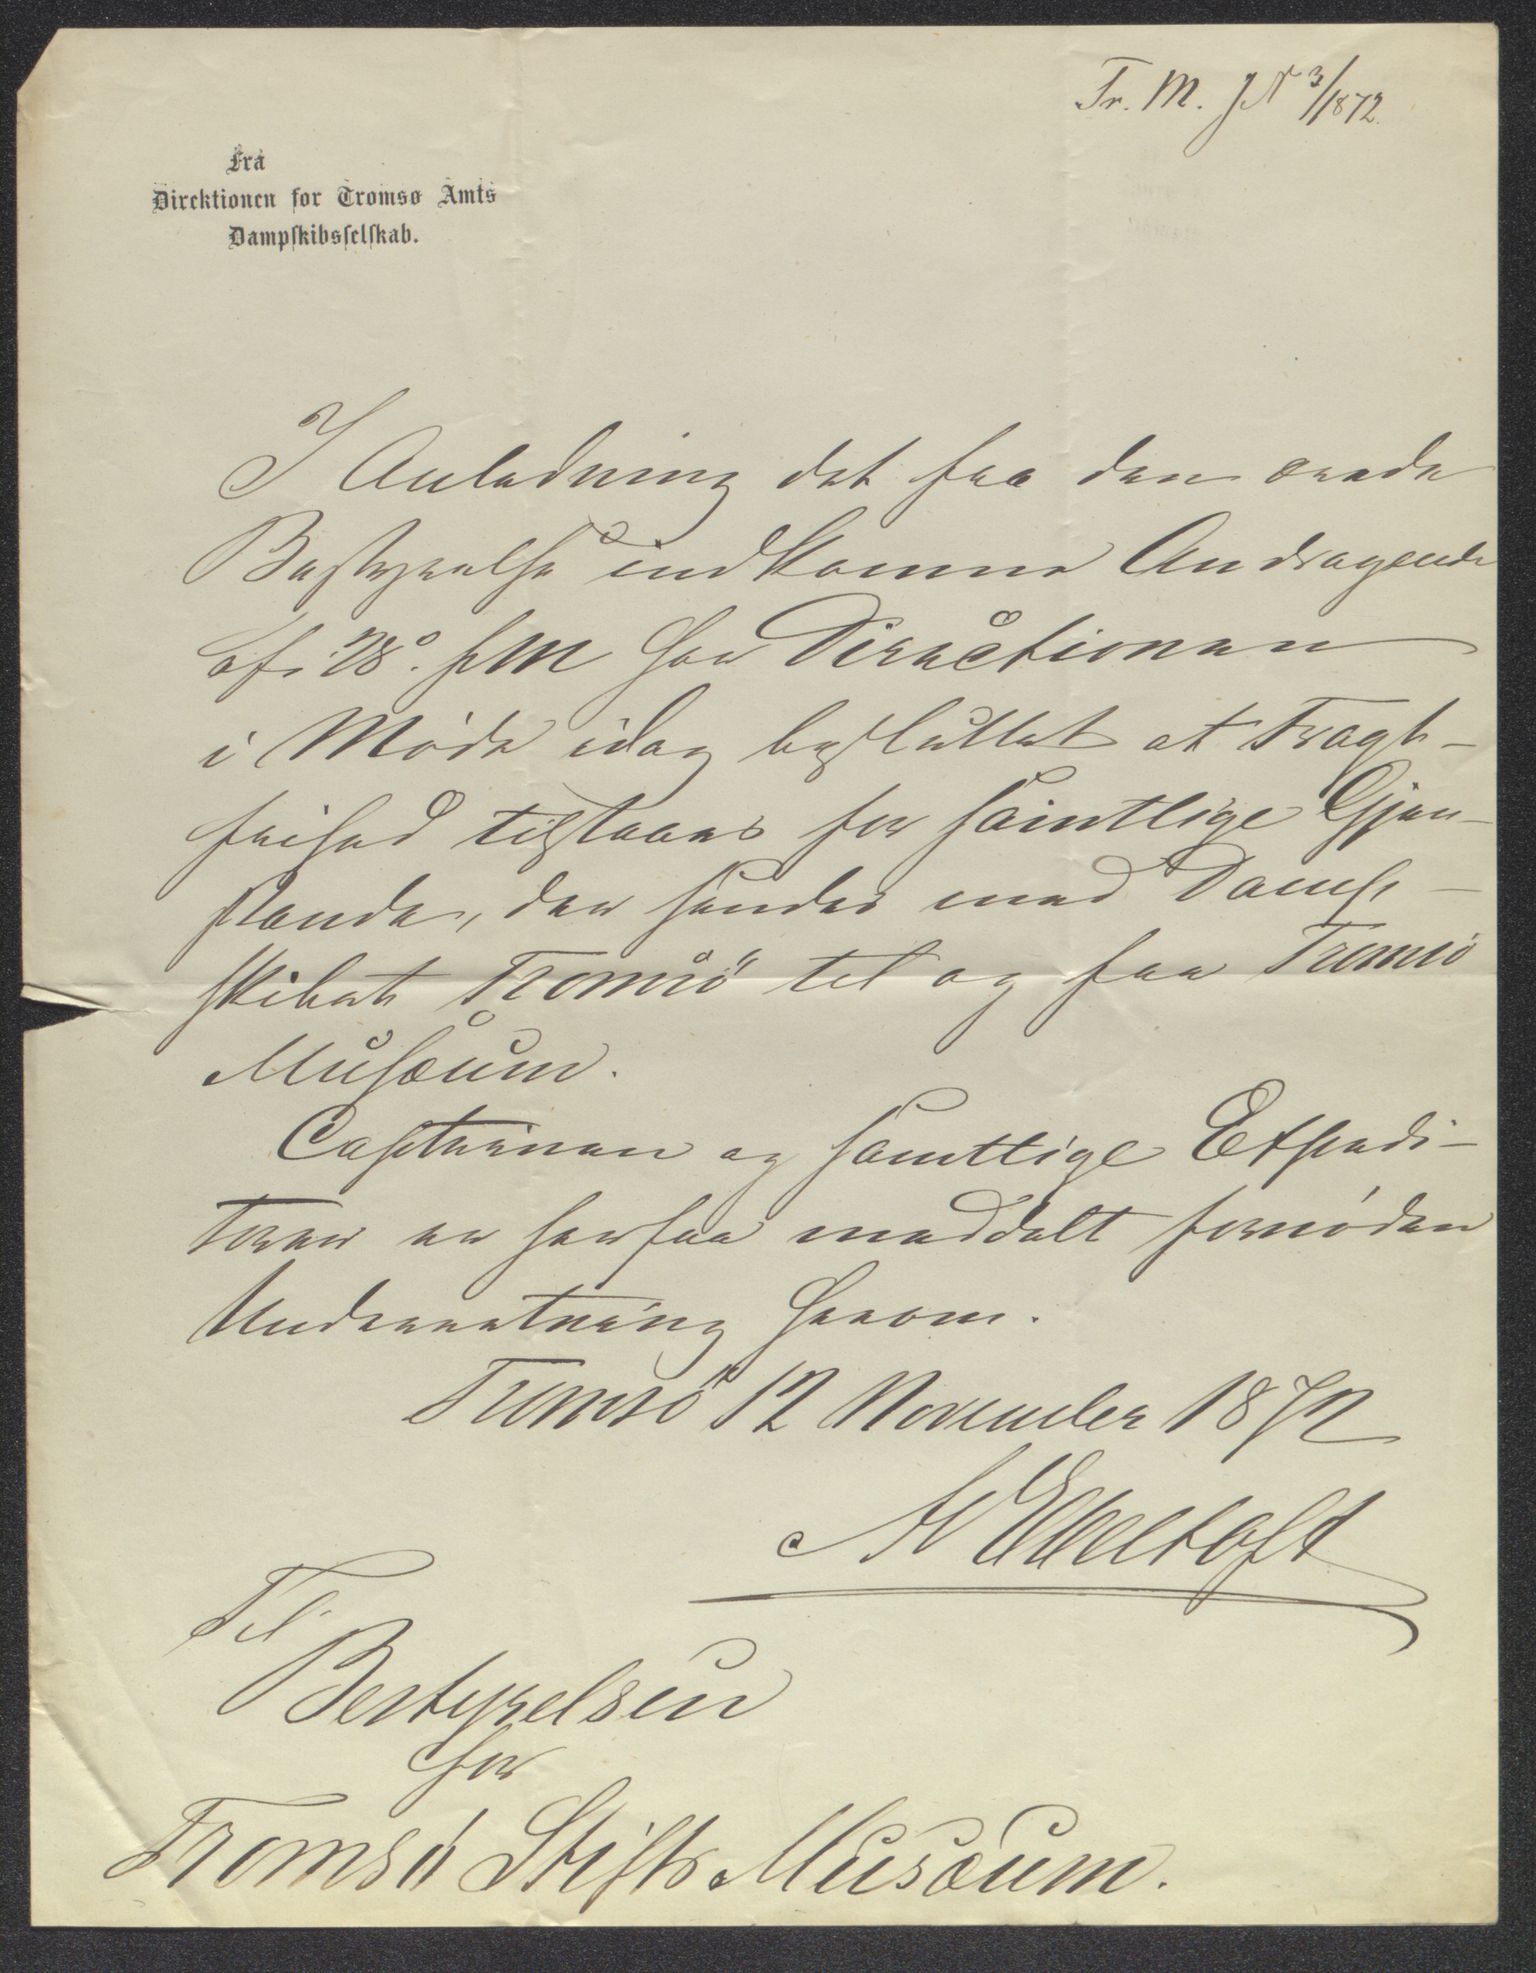 Tr. M. J N 3/1872.
Fra
Direktionen for Tromsø Amts
Dampskibsselskab.
I Anledning det fra den ærede
Bestyrelse indkomne Andragende
af 28. f M har Directionen
i Møde idag besluttet at Fragt-
frihed tilstaaes for samtlige Gjen-
stande, der sendes med Damp-
skibet "Tromsö" til og fra Tromsö
Musæum.
Capteinen og samtlige Expedi-
törer er herfra meddelt fornöden
Underretning herom.
Tromsö 12 November 1872
Ebeltoft
Til
Bestyrelsen
for
Tromsö Stifts Musæum.